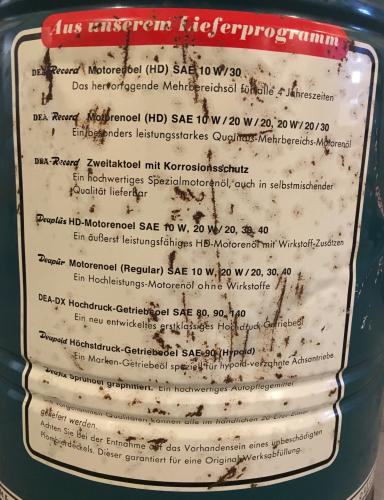 Aus unserem Lieferprogramm
DEA Record Motorenoel (HD) SAE 10 W/30
Das hervorragende Mehrbereichsöl für alle 4 Jahreszeiten
DEA Record Motorenoel (HD) SAE 10 W/20 W/20, 20 W/20/30
Ein besonders leistungsstarkes Qualitäts-Mehrbereichs-Motorenöl
DEA-Record Zweitaktoel mit Korrosionsschutz
Ein hochwertiges Spezialmotorenöl, auch in selbstmischender
Qualität lieferbar
Deaplüs HD-Motorenoel SAE 10 W, 20 W/20, 30, 40
Ein äußerst leistungsfähiges HD-Motorenöl mit Wirkstoff-Zusätzen
Deapür Motorenoel (Regular) SAE 10 W, 20 W/20, 30, 40
Ein Hochleistungs-Motorenöl ohne Wirkstoffe
DEA-DX Hochdruck-Getriebeoel SAE 80, 90, 140
Ein neu entwickeltes erstklassiges Hochdruck-Getriebeöl
Deapoid Höchstdruck-Getriebeoel SAE 90 (Hypoid)
Ein Marken-Getriebeöl speziell für hypoid-verzahnte Achsantriebe
Sprühoel graphitiert. Ein hochwertiges Autopflegemittel
Qualitäten können alle im handlichen 20 Ltr. Eimer
geliefert werden.
Achten Sie bei der Entnahme auf das Vorhandensein eines unbeschädigten
Plombierdeckels. Dieser garantiert für eine Original Werksabfüllung.